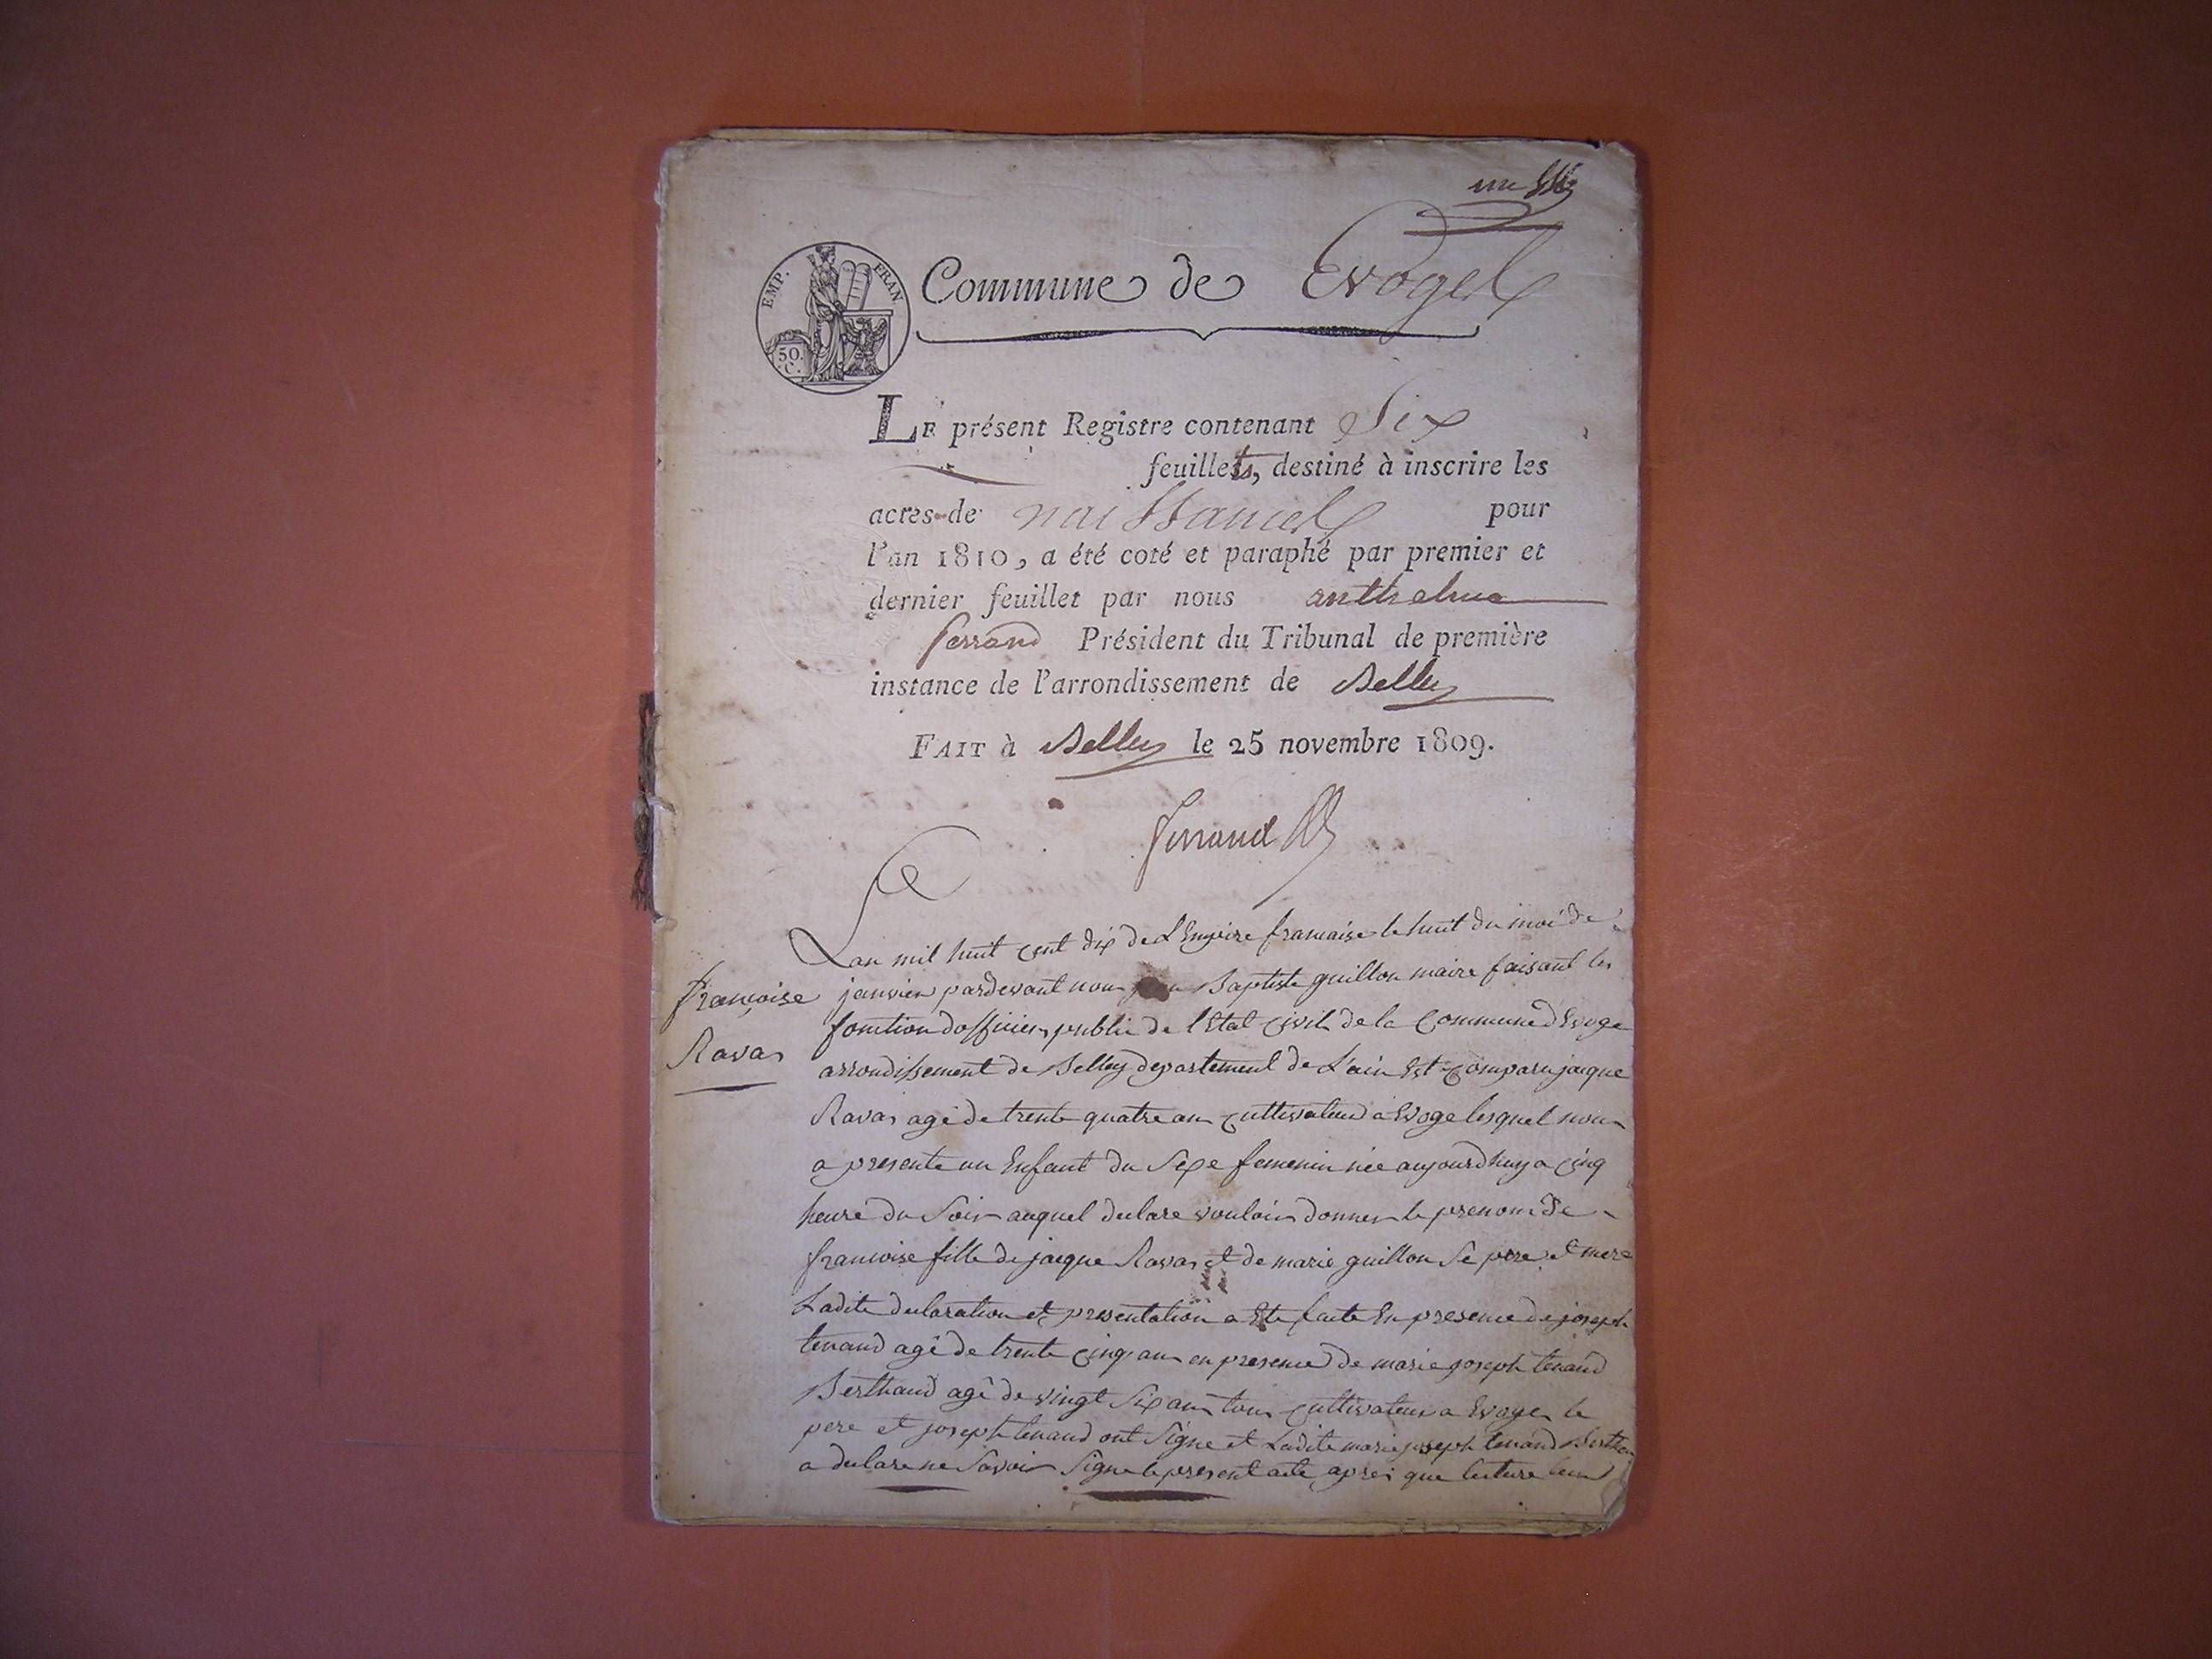 une
EMP. FRAN
50.
C.
Commune de Evoges
LE présent Registre contenant Six
feuillets, destiné à inscrire les
actes de naissances pour
l'an 1810, a été coté et paraphé par premier et
dernier feuillet par nous anthelme
ferrand Président du Tribunal de première
instance de l'arrondissement de Belley
FAIT à Belley le 25 novembre 1809.
ferrand
Lan mil huit cent dix de L'Empire francaise le huit du moi de
françoise
janvier pardevant nous jean Baptiste guillon maire faisant les
fonction dofficier public de l'Etat civil de la Commune d'Evoge
Ravas
arrondissement de Belley departement de L'ain Est comparu jacque
Ravas agé de trente quatre ans cultivateur a Evoge lesquel nous
a presente un Enfant du Sexe femenin née aujourdhuy a cinq
heure du Soir auquel declare vouloir donner le prenom de
francoise fille de jacque Ravas et de marie guillon Se pere et mere
Ladite declaration et presentation a Ete faite En presence de joseph
tenand agé de trente cinq ans en presence de marie joseph tenand
Berthaud agé de vingt Six ans tous cultivateur a Evoges le
pere et joseph tenand ont Signe et Ladite marie joseph tenand
a declare ne Savoir Signe le present acte apres que lecture leur